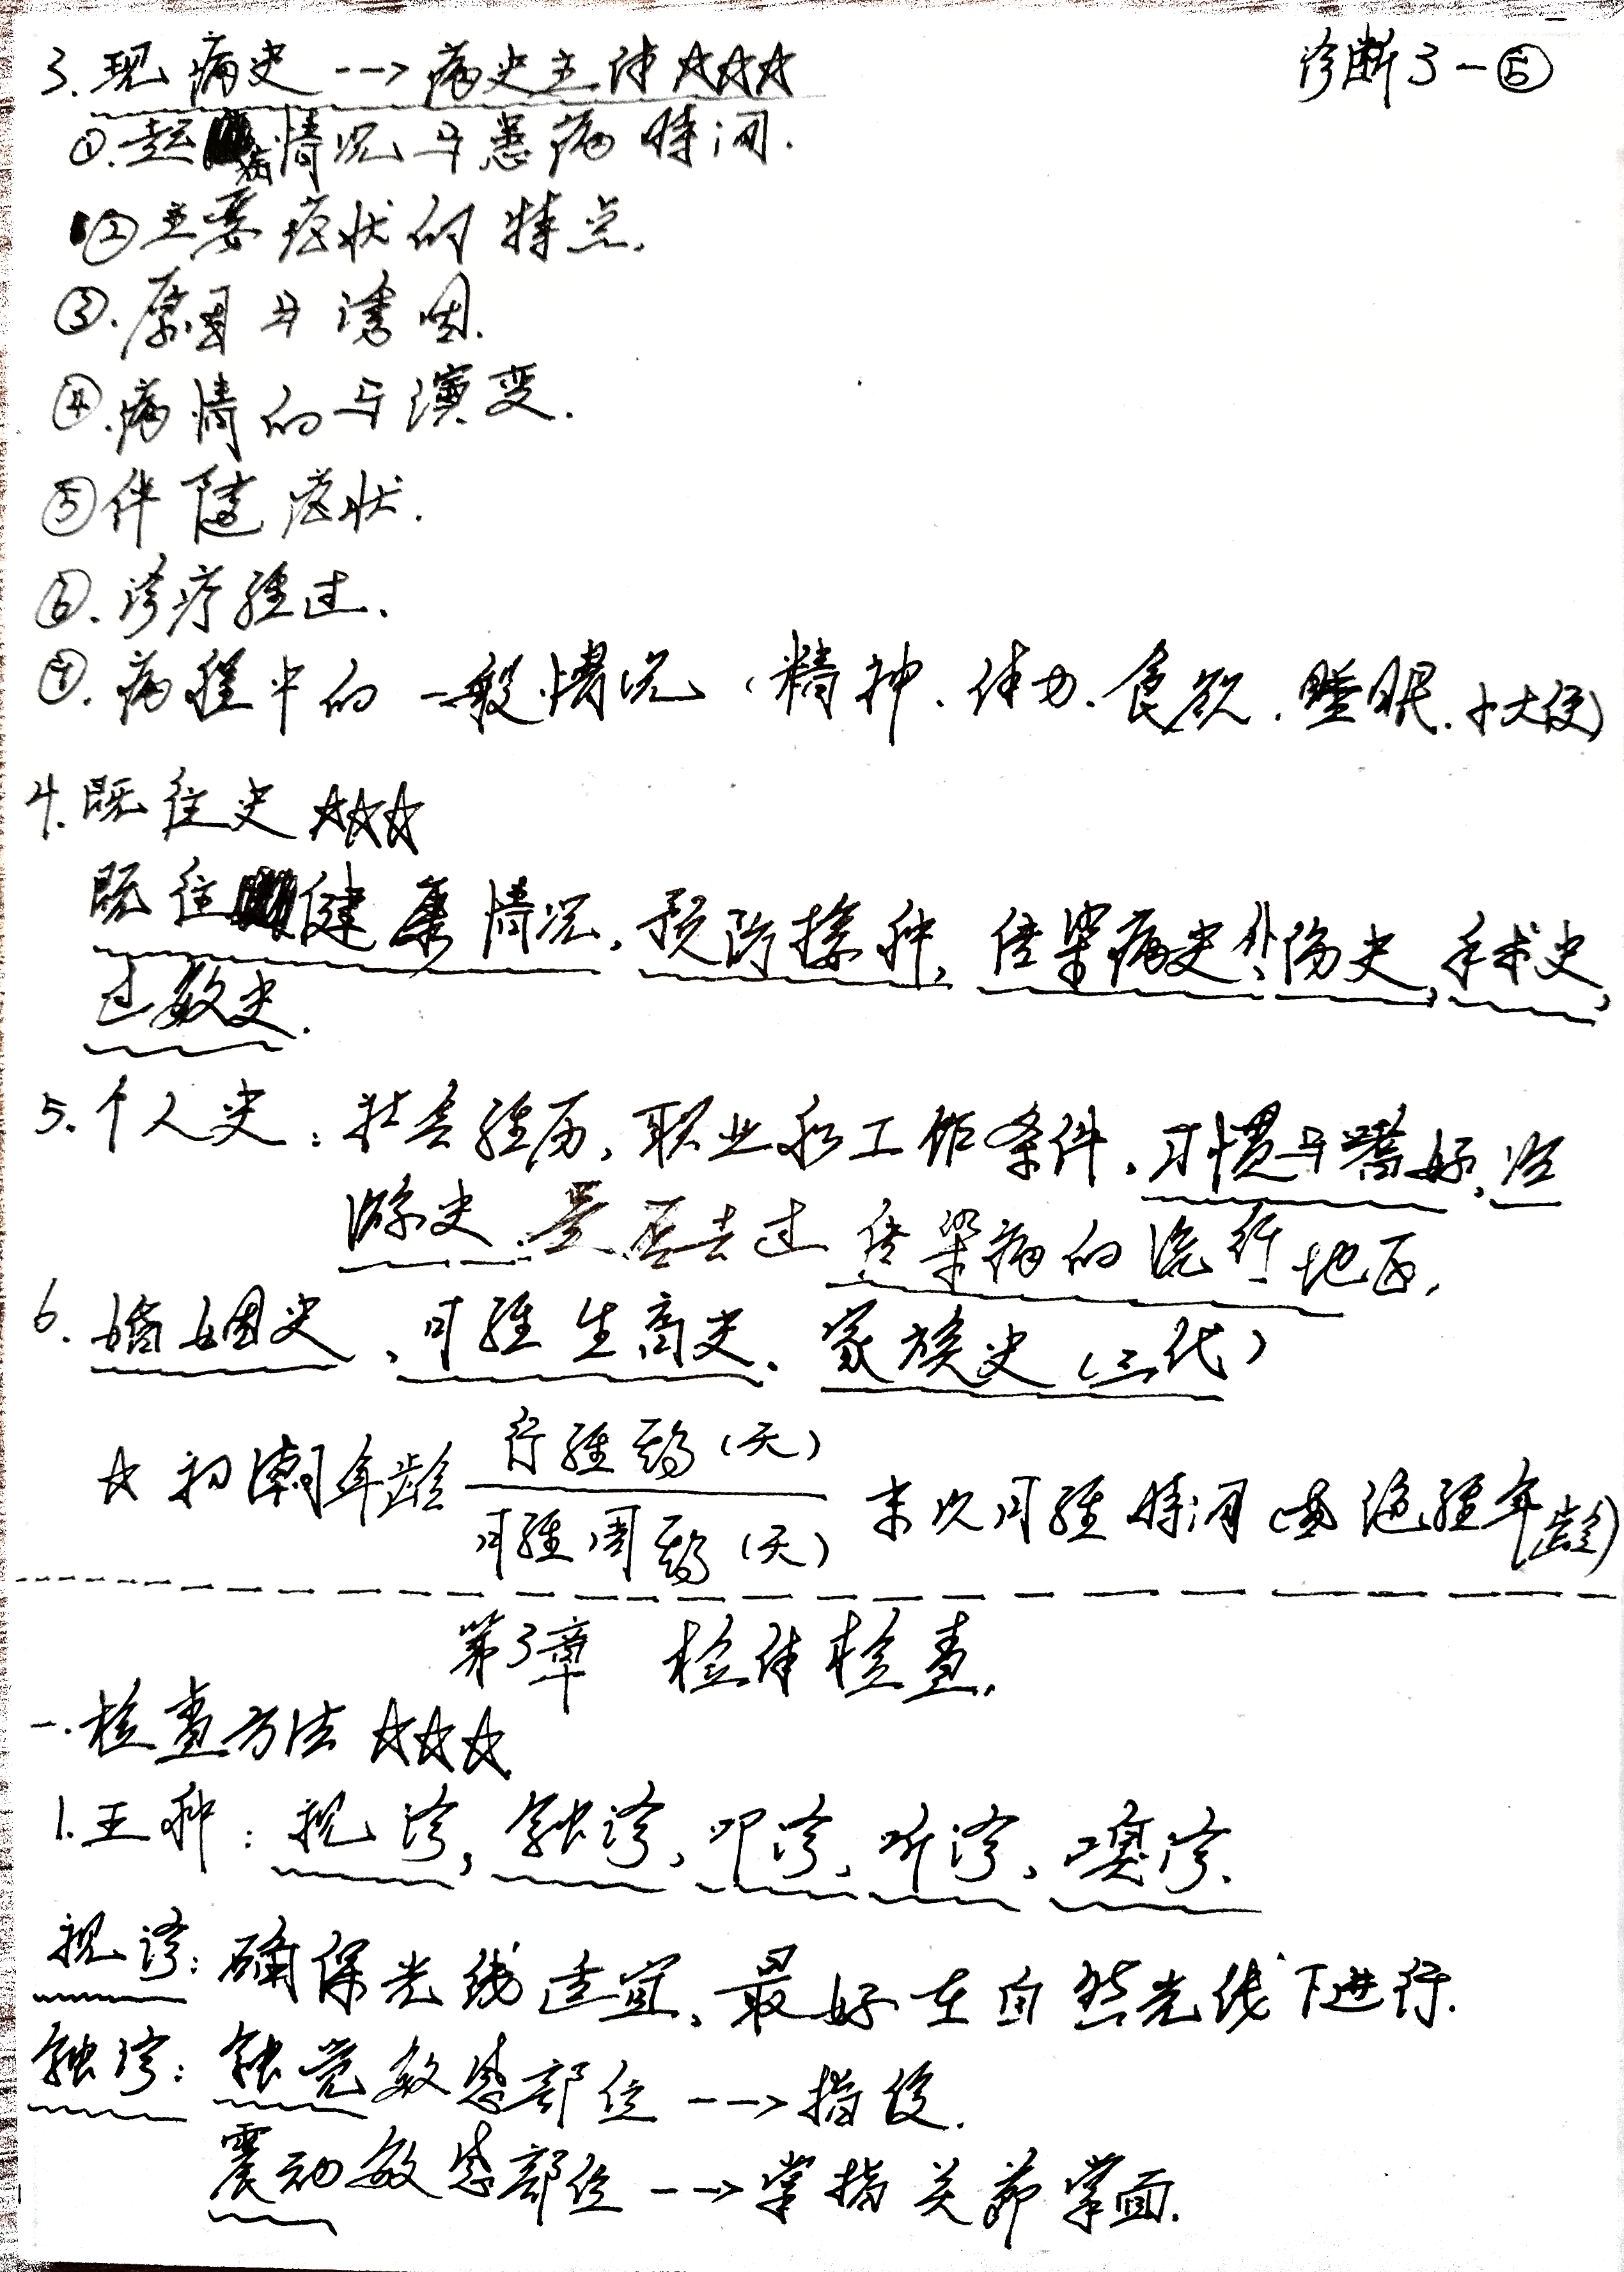 诊断3-⑤
3.现病史-->病史主体☆☆☆
①.起病情况与患病时间.
②主要症状的特点.
③.原因与诱因.
④.病情的与演变.
⑤伴随症状.
⑥.诊疗经过.
⑦.病程中的一般情况(精神、体力、食欲、睡眠、小大便)
4.既往史☆☆☆
既往健康情况、预防接种、传染病史、外伤史、手术史、
过敏史.
5.个人史:社会经历、职业和工作条件、习惯与嗜好、冶
游史、是否去过传染病的流行地区,
6.婚姻史、月经生育史、家族史(三代)
☆初潮年龄 行经期(天)
月经周期(天) 末次月经时间(或绝经年龄)
第3章 检体检查.
一.检查方法☆☆☆
1.五种:视诊、触诊、叩诊、听诊、嗅诊.
视诊:确保光线适宜、最好在自然光线下进行.
触诊:触觉敏感部位-->指腹.
震动敏感部位-->掌指关节掌面.